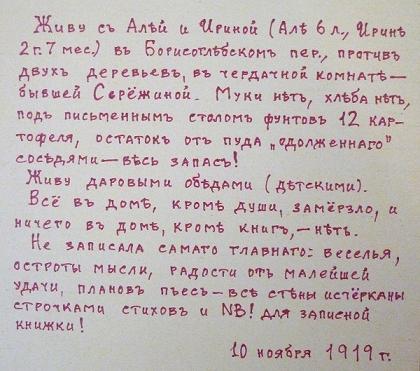 Живу съ Алей и Ириной (Алѣ 6 л., Иринѣ
2 г. 7 мес.) въ Борисоглѣбскомъ пер., противъ
двухъ деревьевъ, въ чердачной комнатѣ—
бывшей Серёжиной. Муки нѣтъ, хлѣба нѣтъ,
подъ письменнымъ столомъ фунтовъ 12 кар-
тофеля, остатокъ отъ пуда „одолженнаго"
сосѣдями—весь запасъ!
Живу даровыми обѣдами (дѣтскими).
Всё въ домѣ, кромѣ души, замёрзло, и
ничего въ домѣ, кромѣ книгъ,—нѣтъ.
Не записала самаго главнаго: веселья,
остроты мысли, радости отъ малейшей
удачи, плановъ пьесъ—всѣ стѣны исчёрканы
строчками стиховъ и NB! для записной
книжки!
10 ноября 1919 г.